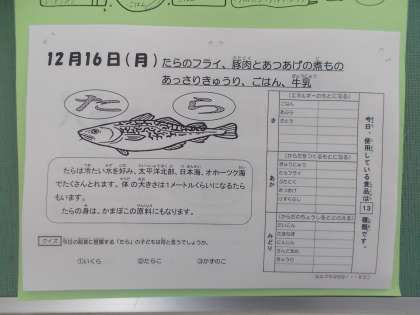 12月16日(月)
たらのフライ、豚肉とあつあげの煮もの
あっさりきゅうり、ごはん、牛乳
たら
たらは冷たい水を好み、太平洋北部、日本海、オホーツク海
でたくさんとれます。体の大きさは1メートルくらいになるたら
もいます。
たらの身は、かまぼこの原料にもなります。
クイズ 今日の給食に登場する「たら」の子どもは何と言うでしょうか。
①いくら ②たらこ ③かずのこ
今日、使用している食品は13種類です。
き
(エネルギーのもとになる)
ごはん
あぶら
さとう
あか
(からだをつくるもとになる)
ぎゅうにゅう
たらフライ
ぶたにく
あつあげ
みどり
(からだのちょうしをととのえる)
だいこん
にんじん
きゅうり